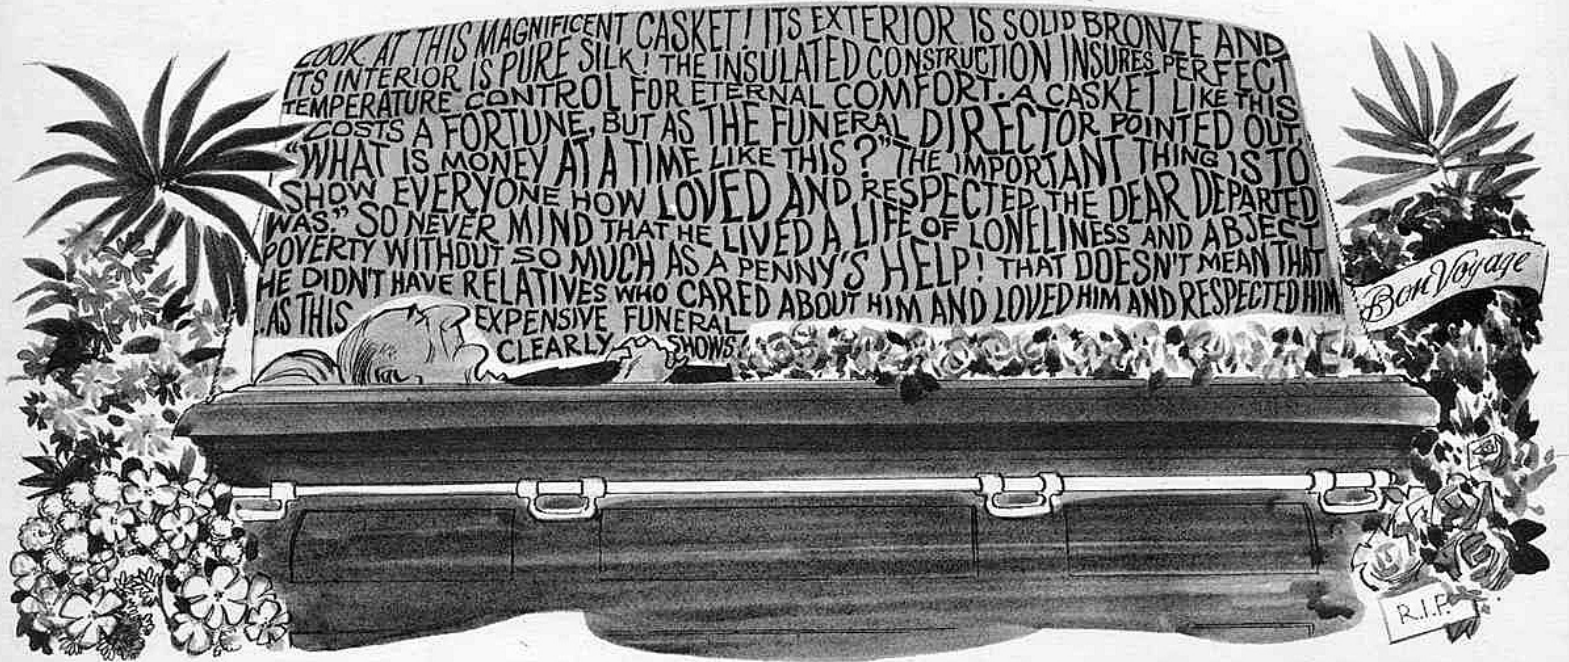 LOOK AT THIS MAGNIFICENT CASKET! ITS EXTERIOR IS SOLID BRONZE AND
ITS INTERIOR IS PURE SILK! THE INSULATED CONSTRUCTION INSURES PERFECT
TEMPERATURE CONTROL FOR ETERNAL COMFORT. A CASKET LIKE THIS
COSTS A FORTUNE, BUT AS THE FUNERAL DIRECTOR POINTED OUT,
"WHAT IS MONEY AT A TIME LIKE THIS?" THE IMPORTANT THING IS TO
SHOW EVERYONE HOW LOVED AND RESPECTED THE DEAR DEPARTED
WAS." SO NEVER MIND THAT HE LIVED A LIFE OF LONELINESS AND ABJECT
POVERTY WITHOUT SO MUCH AS A PENNY'S HELP! THAT DOESN'T MEAN THAT
HE DIDN'T HAVE RELATIVES WHO CARED ABOUT HIM AND LOVED HIM AND RESPECTED HIM
...AS THIS EXPENSIVE FUNERAL
CLEARLY SHOWS!
Bon Voyage
R.I.P.